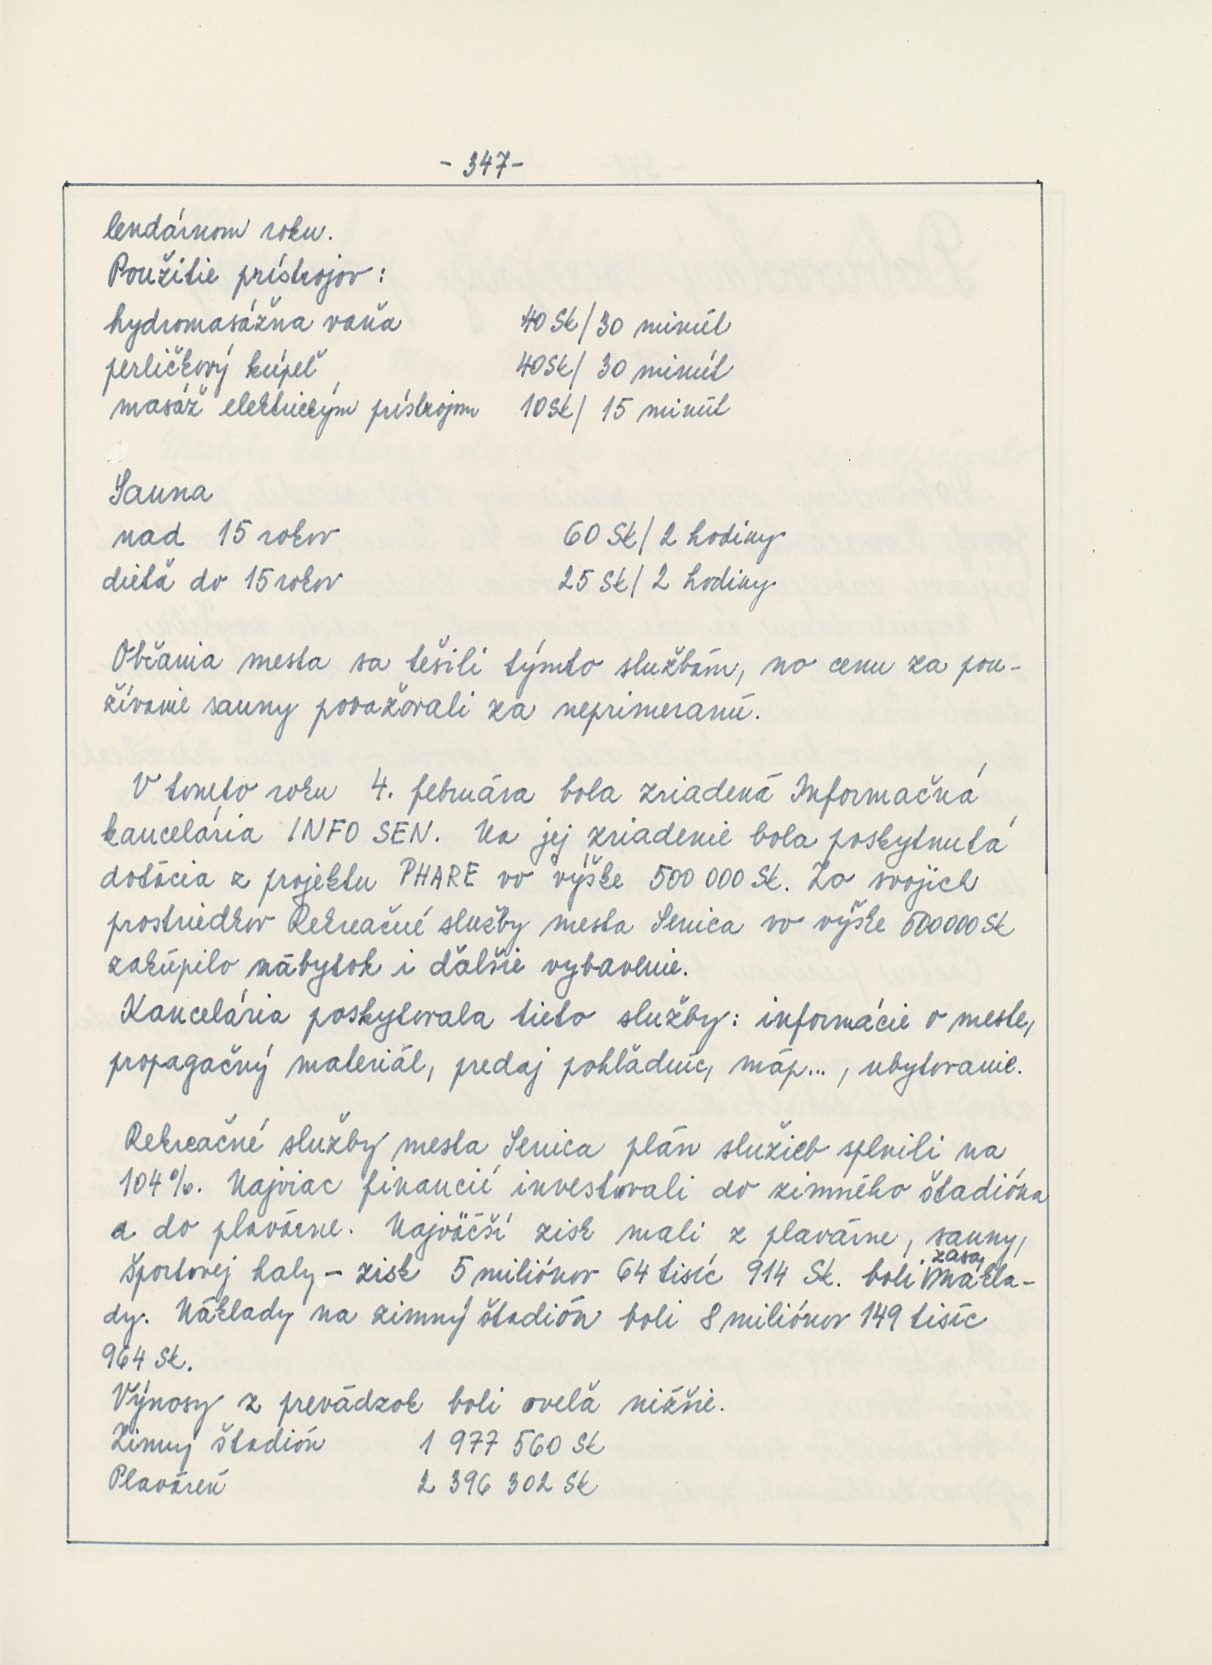 - 347 -
lendárnom roku.
Použitie prístrojov:
hydromasážna vaňa 40 Sk/30 minút
perličkový kúpeľ 40 Sk/ 30 minút
masáž elektrickým prístrojom 10 Sk/ 15 minút
Sauna
nad 15 rokov 60 Sk/ 2 hodiny
dieťa do 15 rokov 25 Sk/ 2 hodiny
Občania mesta sa tešili týmto službám, no cenu za pou-
žívanie sauny považovali za neprimeranú.
V tomto roku 4. februára bola zriadená Informačná
kancelária INFO SEN. Na jej zriadenie bola poskytnutá
dotácia z projektu PHARE vo výške 500 000 Sk. Zo svojich
prostriedkov Rekreačné služby mesta Senica vo výške 500 000 Sk
zakúpilo nábytok i ďalšie vybavenie.
Kancelária poskytovala tieto služby: informácie o meste,
propagačný materiál, predaj pohľadníc, máp..., ubytovanie.
Rekreačné služby mesta Senica plán služieb splnili na
104 %. Najviac financií investovali do zimného štadióna
a do plavárne. Najväčší zisk mali z plavárne, sauny,
športovej haly - zisk 5 miliónov 64 tisíc 914 Sk. boli zasa nákla-
dy. Náklady na zimný štadión boli 8 miliónov 149 tisíc
964 Sk.
Výnosy z prevádzok boli oveľa nižšie.
Zimný štadión 1 977 560 Sk
Plaváreň 2 396 302 Sk